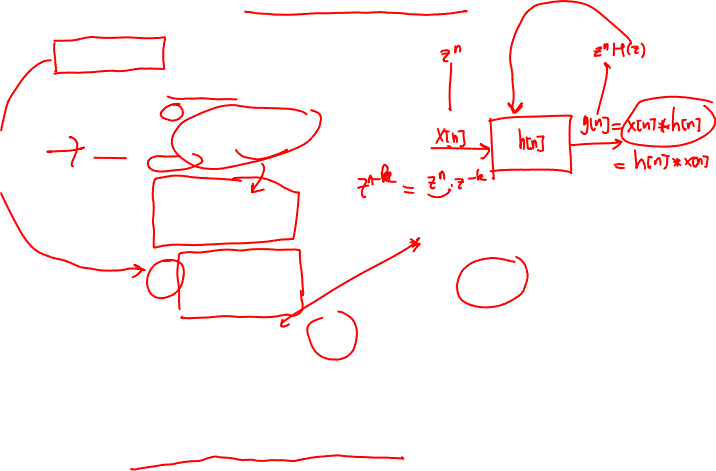 zⁿ
zⁿH(z)
x[n]
h[n]
y[n] = x[n] * h[n]
= h[n] * x[n]
zⁿ⁻ᵏ = zⁿ · z⁻ᵏ